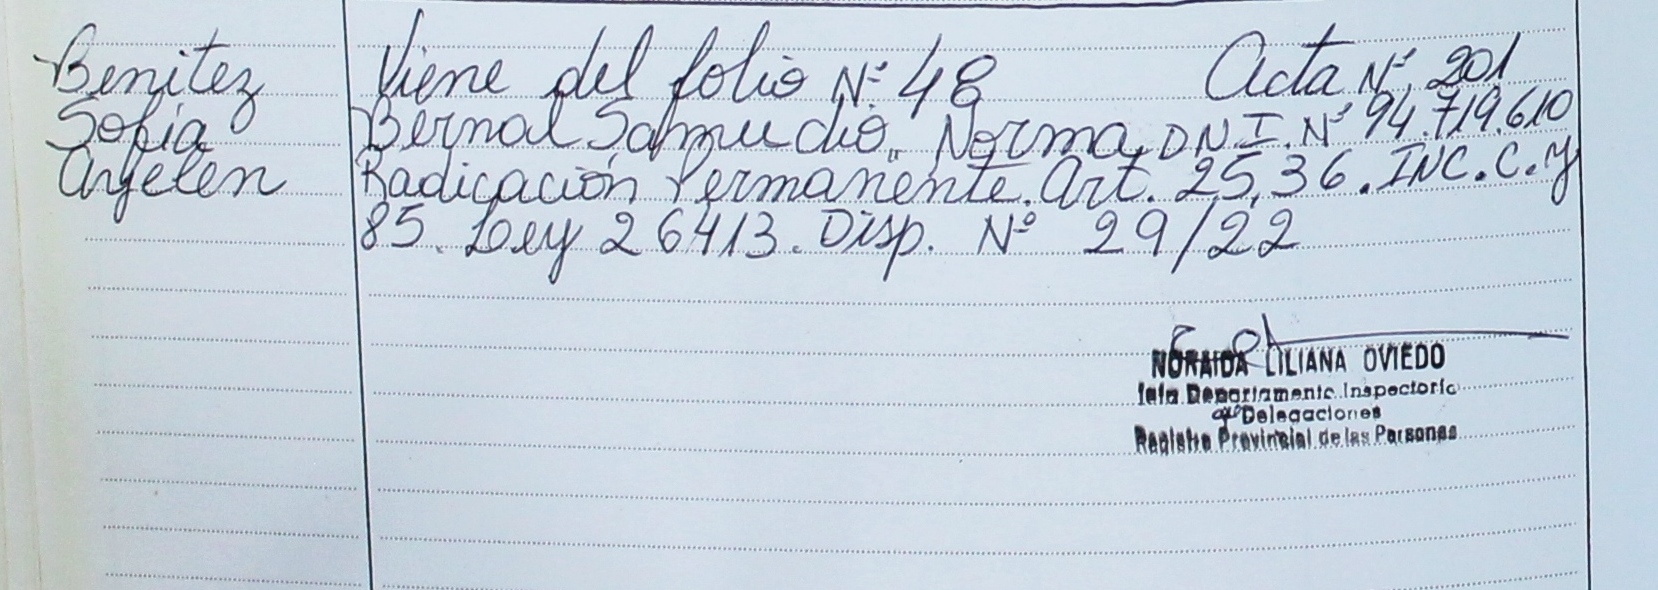 Benitez
Sofia
Aryelen
Viene del folio Nº 48 Acta Nº 201
Bernal Samudio, Norma, D N I. Nº 94.719.610
Radicación Permanente. Art. 25, 36. INC. C. y
85. Ley 26413. Disp. Nº 29/22
NORAIDA LILIANA OVIEDO
Jefa Departamento Inspectoria
de Delegaciones
Registro Provincial de las Personas